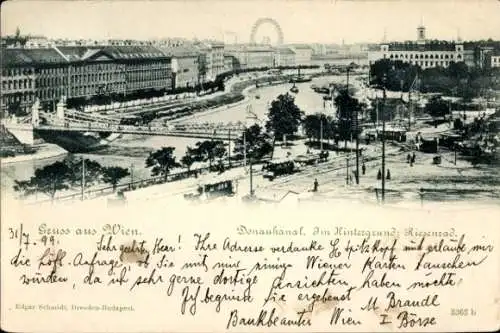 Gruss aus Wien.
Donaukanal. Im Hintergrund: Riesenrad.
31/7. 99. Sehr geehrt. Herr! Ihre Adresse verdanke H. Spitzkopf und erlaube mir
die höfl. Anfrage, ob Sie mit mir Wiener Karten tauschen
würden, da ich sehr gerne dortige Ansichten haben möchte.
Ich begrüsse Sie ergebenst M. Brandl
Bankbeamter Wien I Börse
Edgar Schmidt, Dresden-Budapest.
5363 b